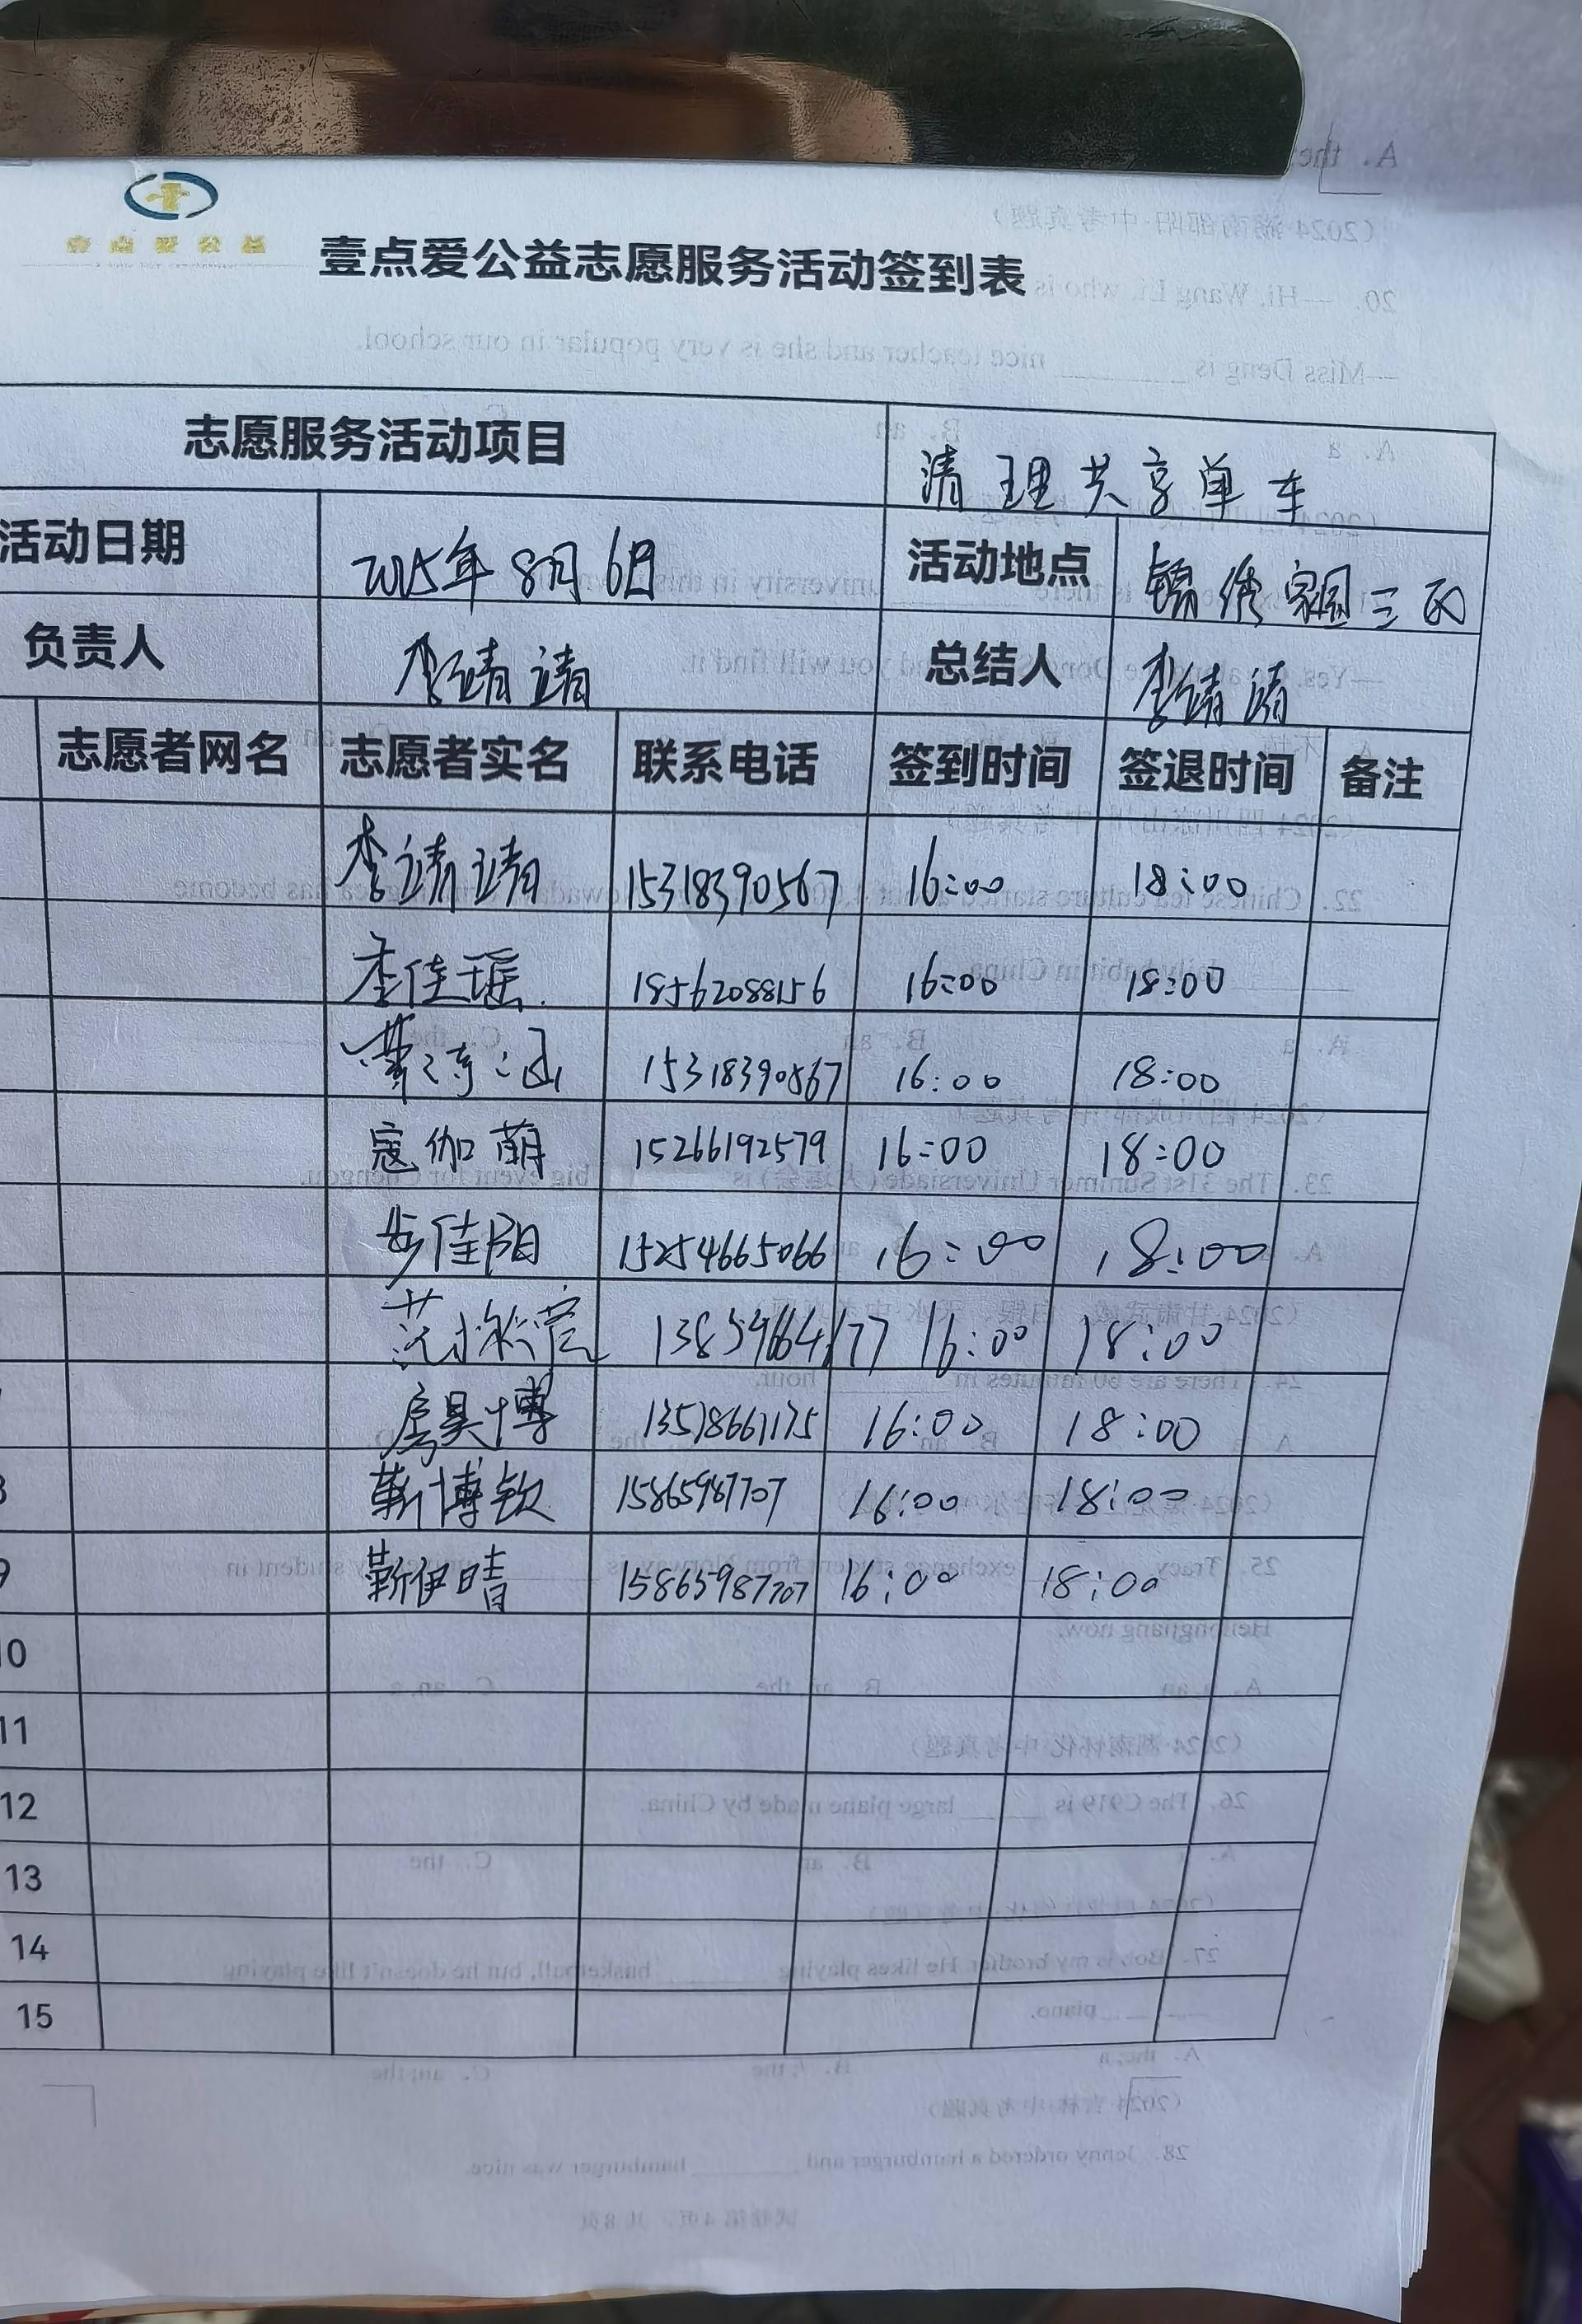 壹点爱公益
壹点爱公益志愿服务活动签到表
志愿服务活动项目 清理共享单车
活动日期 2025年8月6日 活动地点 锦绣家园三区
负责人 李靖靖 总结人 李靖靖
志愿者网名 志愿者实名 联系电话 签到时间 签退时间 备注
李靖靖 15318390567 16:00 18:00
李佳瑶 18562088156 16:00 18:00
15318390567 16:00 18:00
寇伽萌 15266192579 16:00 18:00
步佳阳 15254665066 16:00 18:00
16:00 18:00
房昊博 13518661175 16:00 18:00
8 靳博钦 15865987707 16:00 18:00
9 靳伊晴 15865987707 16:00 18:00
10
11
12
13
14
15